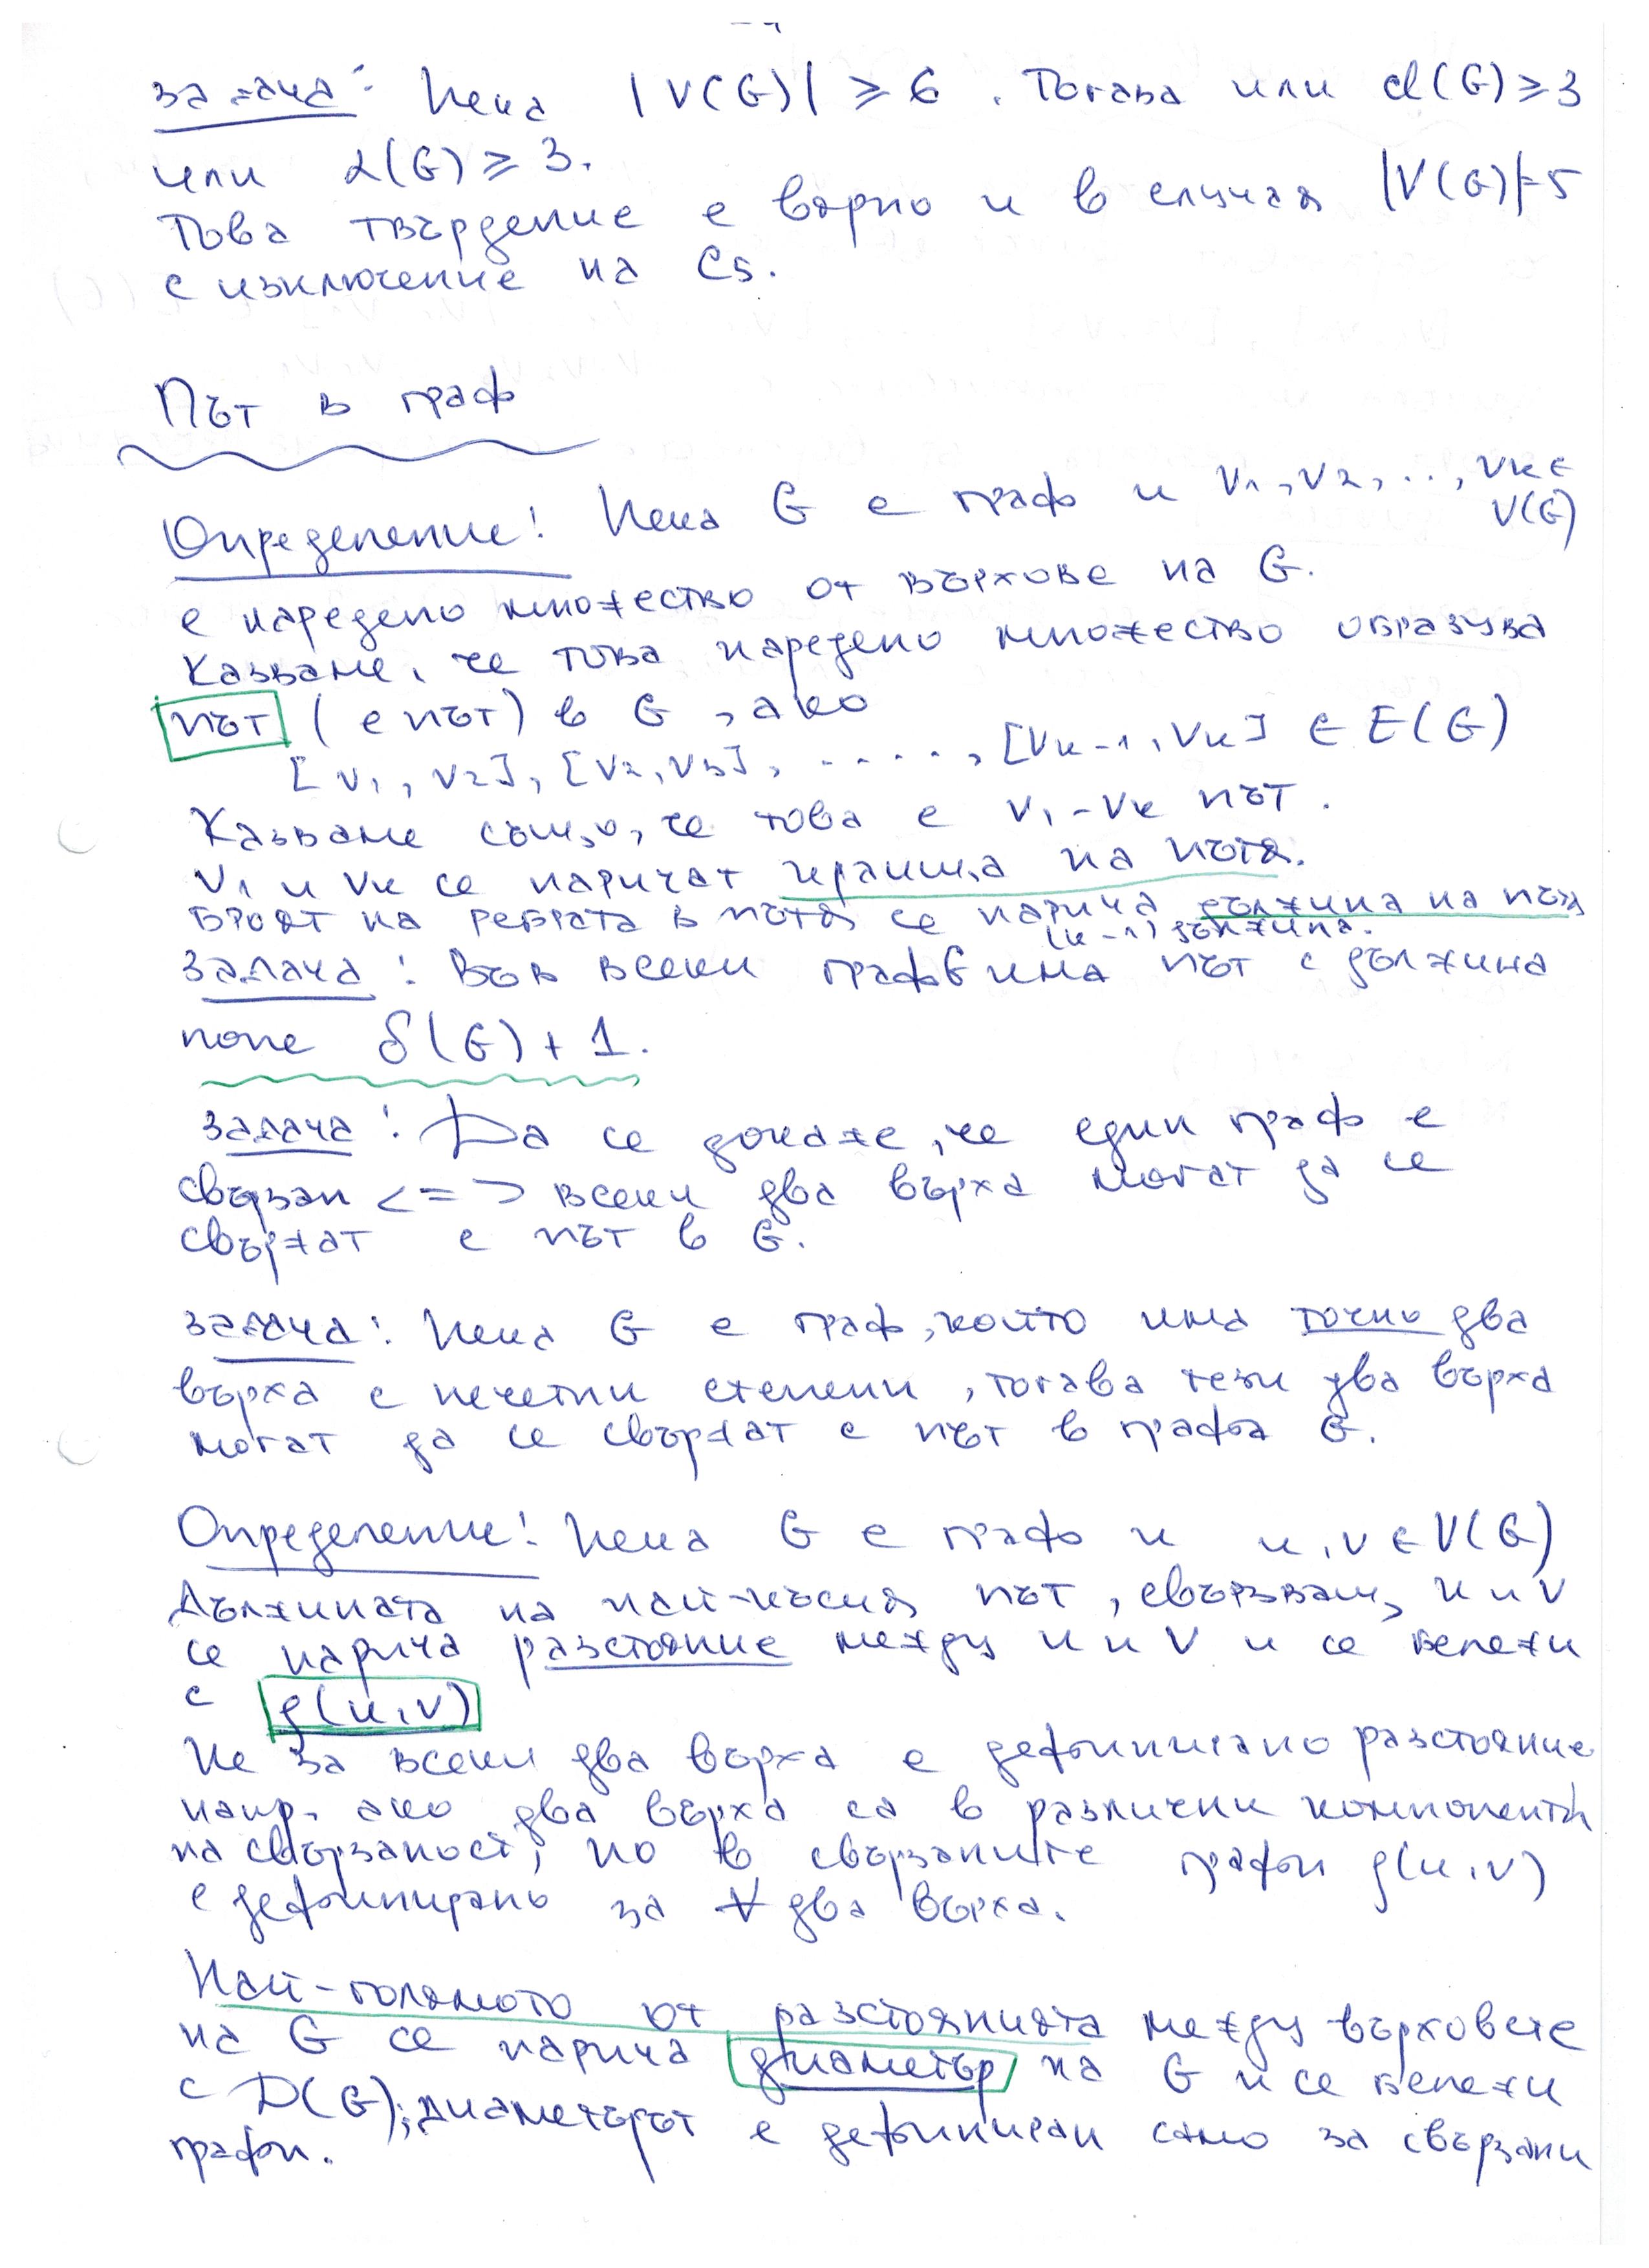 Задача: Нека |V(G)| ≥ 6. Тогава или cl(G) ≥ 3
или α(G) ≥ 3.
Това твърдение е вярно и в случая |V(G)|=5
с изключение на C5.
Път в граф
Определение! Нека G е граф и v1, v2, ..., vk ∈
V(G)
е наредено множество от върхове на G.
Казваме, че това наредено множество образува
път (е път) в G, ако
[v1, v2], [v2, v3], ....., [vk-1, vk] ∈ E(G)
Казваме също, че това е v1-vk път.
v1 и vk се наричат краища на пътя.
Броят на ребрата в пътя се нарича дължина на пътя
(k-1) дължина.
Задача: Във всеки граф G има път с дължина
поне δ(G)+1.
Задача: Да се докаже, че един граф е
свързан <=> всеки два върха могат да се
свържат с път в G.
Задача: Нека G е граф, който има точно два
върха с нечетни степени, тогава тези два върха
могат да се свържат с път в графа G.
Определение! Нека G е граф и u, v ∈ V(G)
Дължината на най-късия път, свързващ u и v
се нарича разстояние между u и v и се бележи
с ρ(u,v)
Не за всеки два върха е дефинирано разстояние
напр. ако два върха са в различни компоненти
на свързаност, но в свързаните графи ρ(u,v)
е дефинирано за ∀ два върха.
Най-голямото от разстоянията между върховете
на G се нарича диаметър на G и се бележи
с D(G); диаметърът е дефиниран само за свързани
графи.